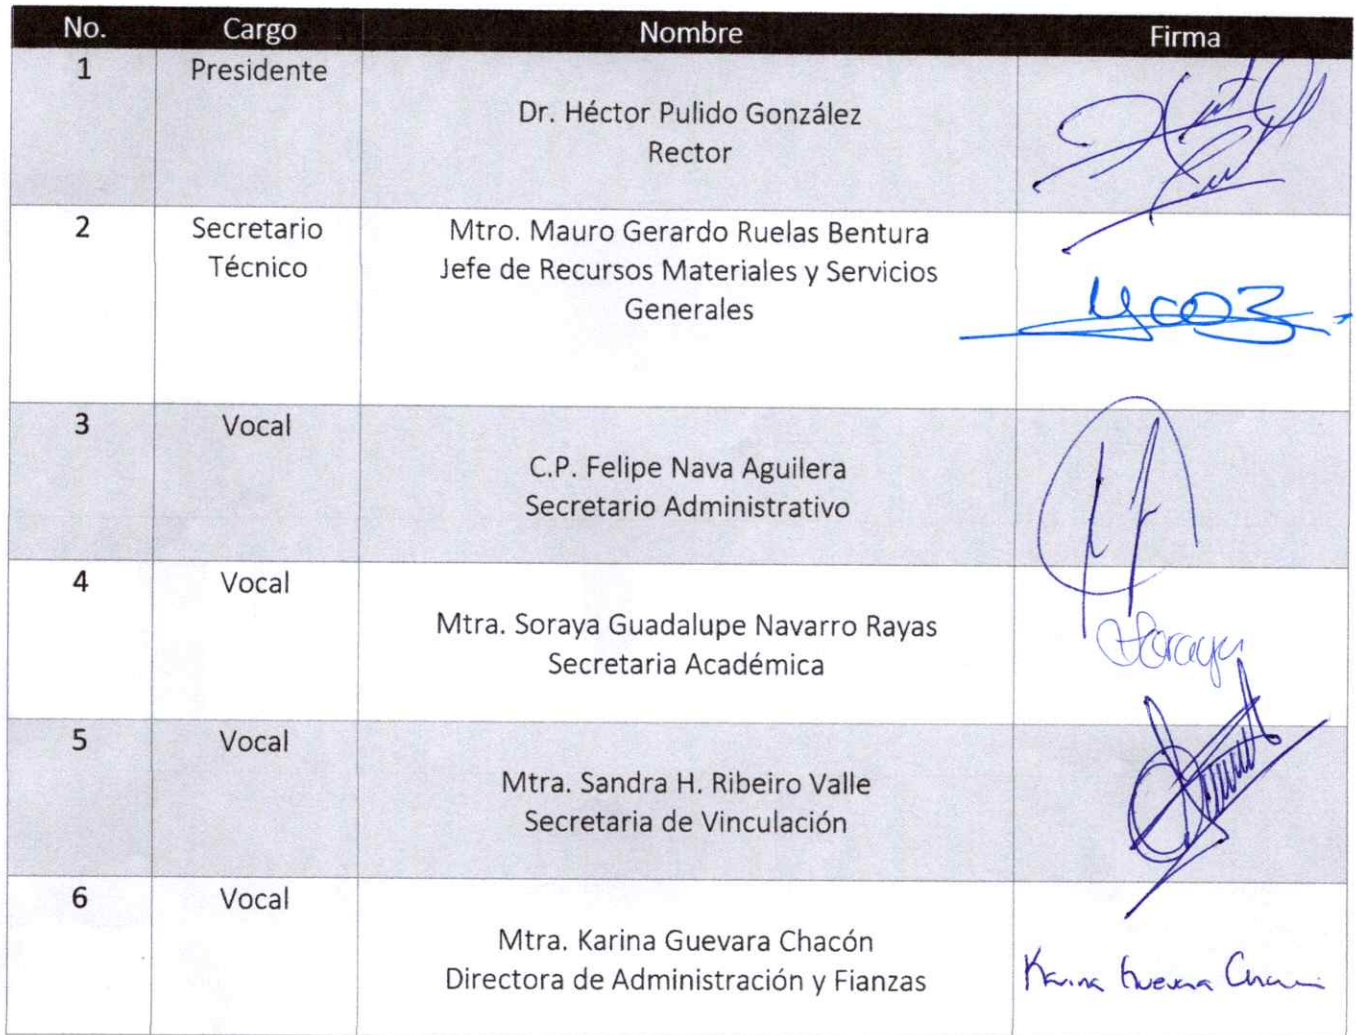 No. Cargo Nombre Firma
1 Presidente
Dr. Héctor Pulido González
Rector
2 Secretario Técnico
Mtro. Mauro Gerardo Ruelas Bentura
Jefe de Recursos Materiales y Servicios
Generales
3 Vocal
C.P. Felipe Nava Aguilera
Secretario Administrativo
4 Vocal
Mtra. Soraya Guadalupe Navarro Rayas
Secretaria Académica
Soraya
5 Vocal
Mtra. Sandra H. Ribeiro Valle
Secretaria de Vinculación
6 Vocal
Mtra. Karina Guevara Chacón
Directora de Administración y Fianzas
Karina Guevara Chacón